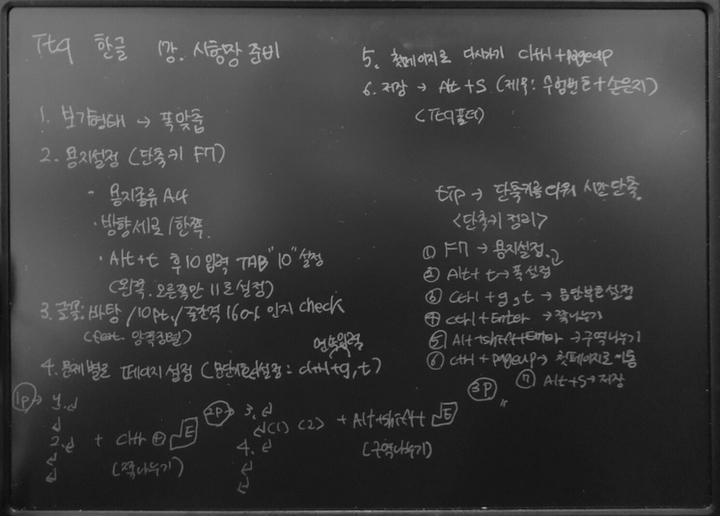 Ttq 한글 1강. 시험장 준비
1. 보기형태 → 폭맞춤
2. 용지설정 (단축키 F7)
· 용지종류 A4
· 방향세로 / 한쪽
· Alt+t 후 10 입력 TAB "10" 설정
(왼쪽. 오른쪽만 11로 설정)
3. 글꼴: 바탕 / 10pt / 줄간격 160% 인지 check
(feat. 양쪽정렬)
4. 문제별로 페이지 설정 (문단부호설정: ctrl+g,t)
1p → 1.↵
↵
2.↵ + ctrl + E
↵ (쪽나누기)
↵
2p → 3.↵
↵(1) (2) + Alt+shift+ E
4.↵ (구역나누기)
↵
↵
3p
5. 첫페이지로 다시가기 ctrl+pageup
6. 저장 → Alt+S (제목: 수험번호+손은지)
(Ttq폴더)
tip → 단축키를 외워 시간단축
<단축키 정리>
① F7 → 용지설정
② Alt+t → 폭설정
③ ctrl+g,t → 문단부호설정
④ ctrl+Enter → 쪽나누기
⑤ Alt+shift+Enter → 구역나누기
⑥ ctrl+pageup → 첫페이지로 이동
⑦ Alt+S → 저장